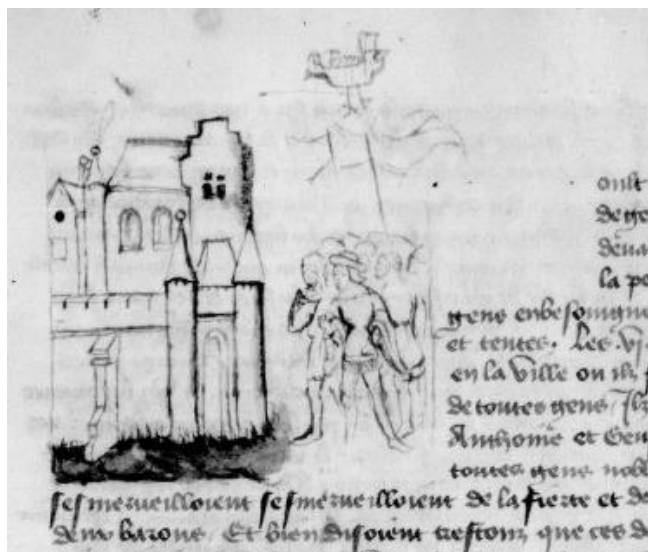 oult
de ge
deua
la po
gens enbesongne
et tentes. Les vj.
en la ville ou ilz
de toutes gens. Ilz
Anthoine et Geu
toutes gens nobl
ses merueilloient ses merueilloient de la fierte et de
deux barons. Et bien disoient trestous que ces d